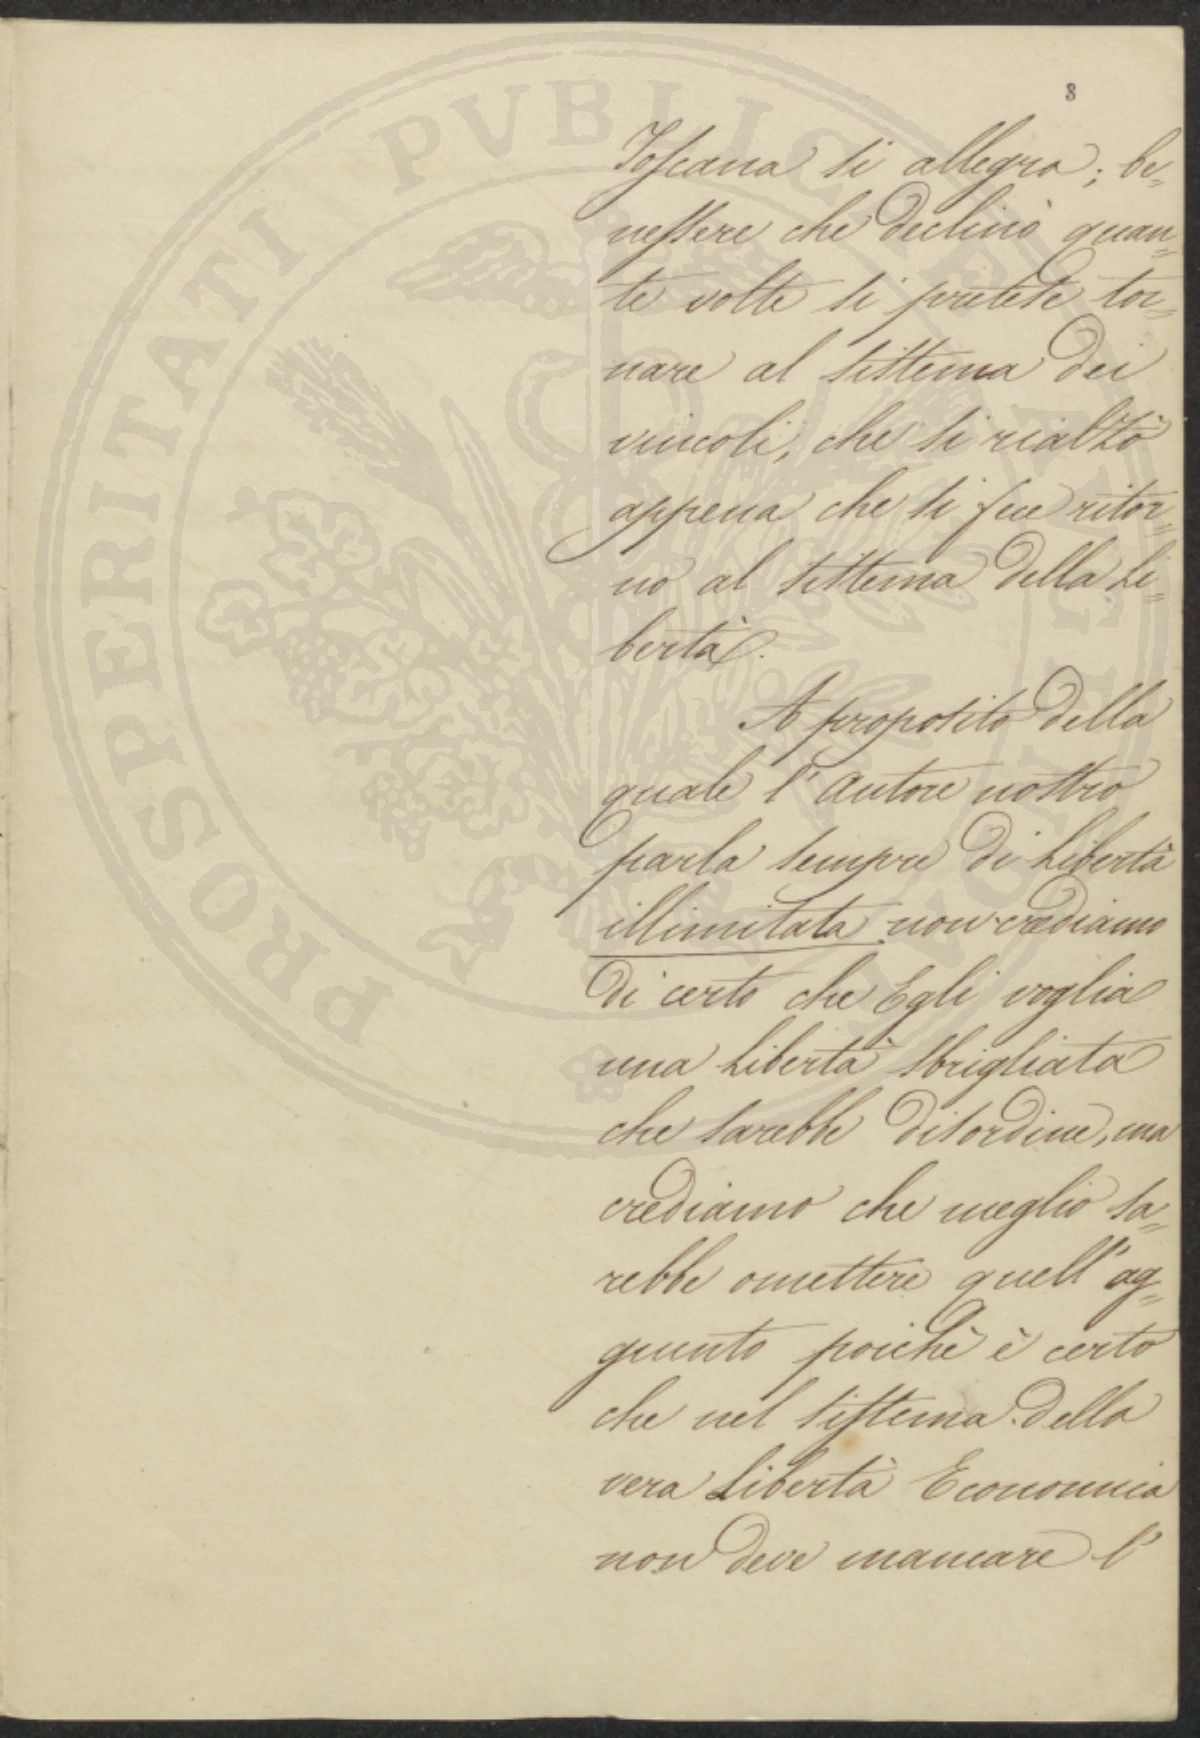 8
Toscana si allegra; be=
nessere che declinò quan=
te volte si pretese tor=
nare al sistema dei
vincoli, che si rialzò
appena che si fece ritor=
no al sistema della Li=
bertà.
A proposito della
quale l'Autore nostro
parla sempre di Libertà
illimitata non crediamo
di certo che Egli voglia
una Libertà sbrigliata
che sarebbe disordine, ma
crediamo che meglio sa=
rebbe omettere quell'ag=
giunto poichè è certo
che nel sistema della
vera Libertà Economica
non deve mancare l'
PROSPERITATI PVBLICAE AVGENDAE